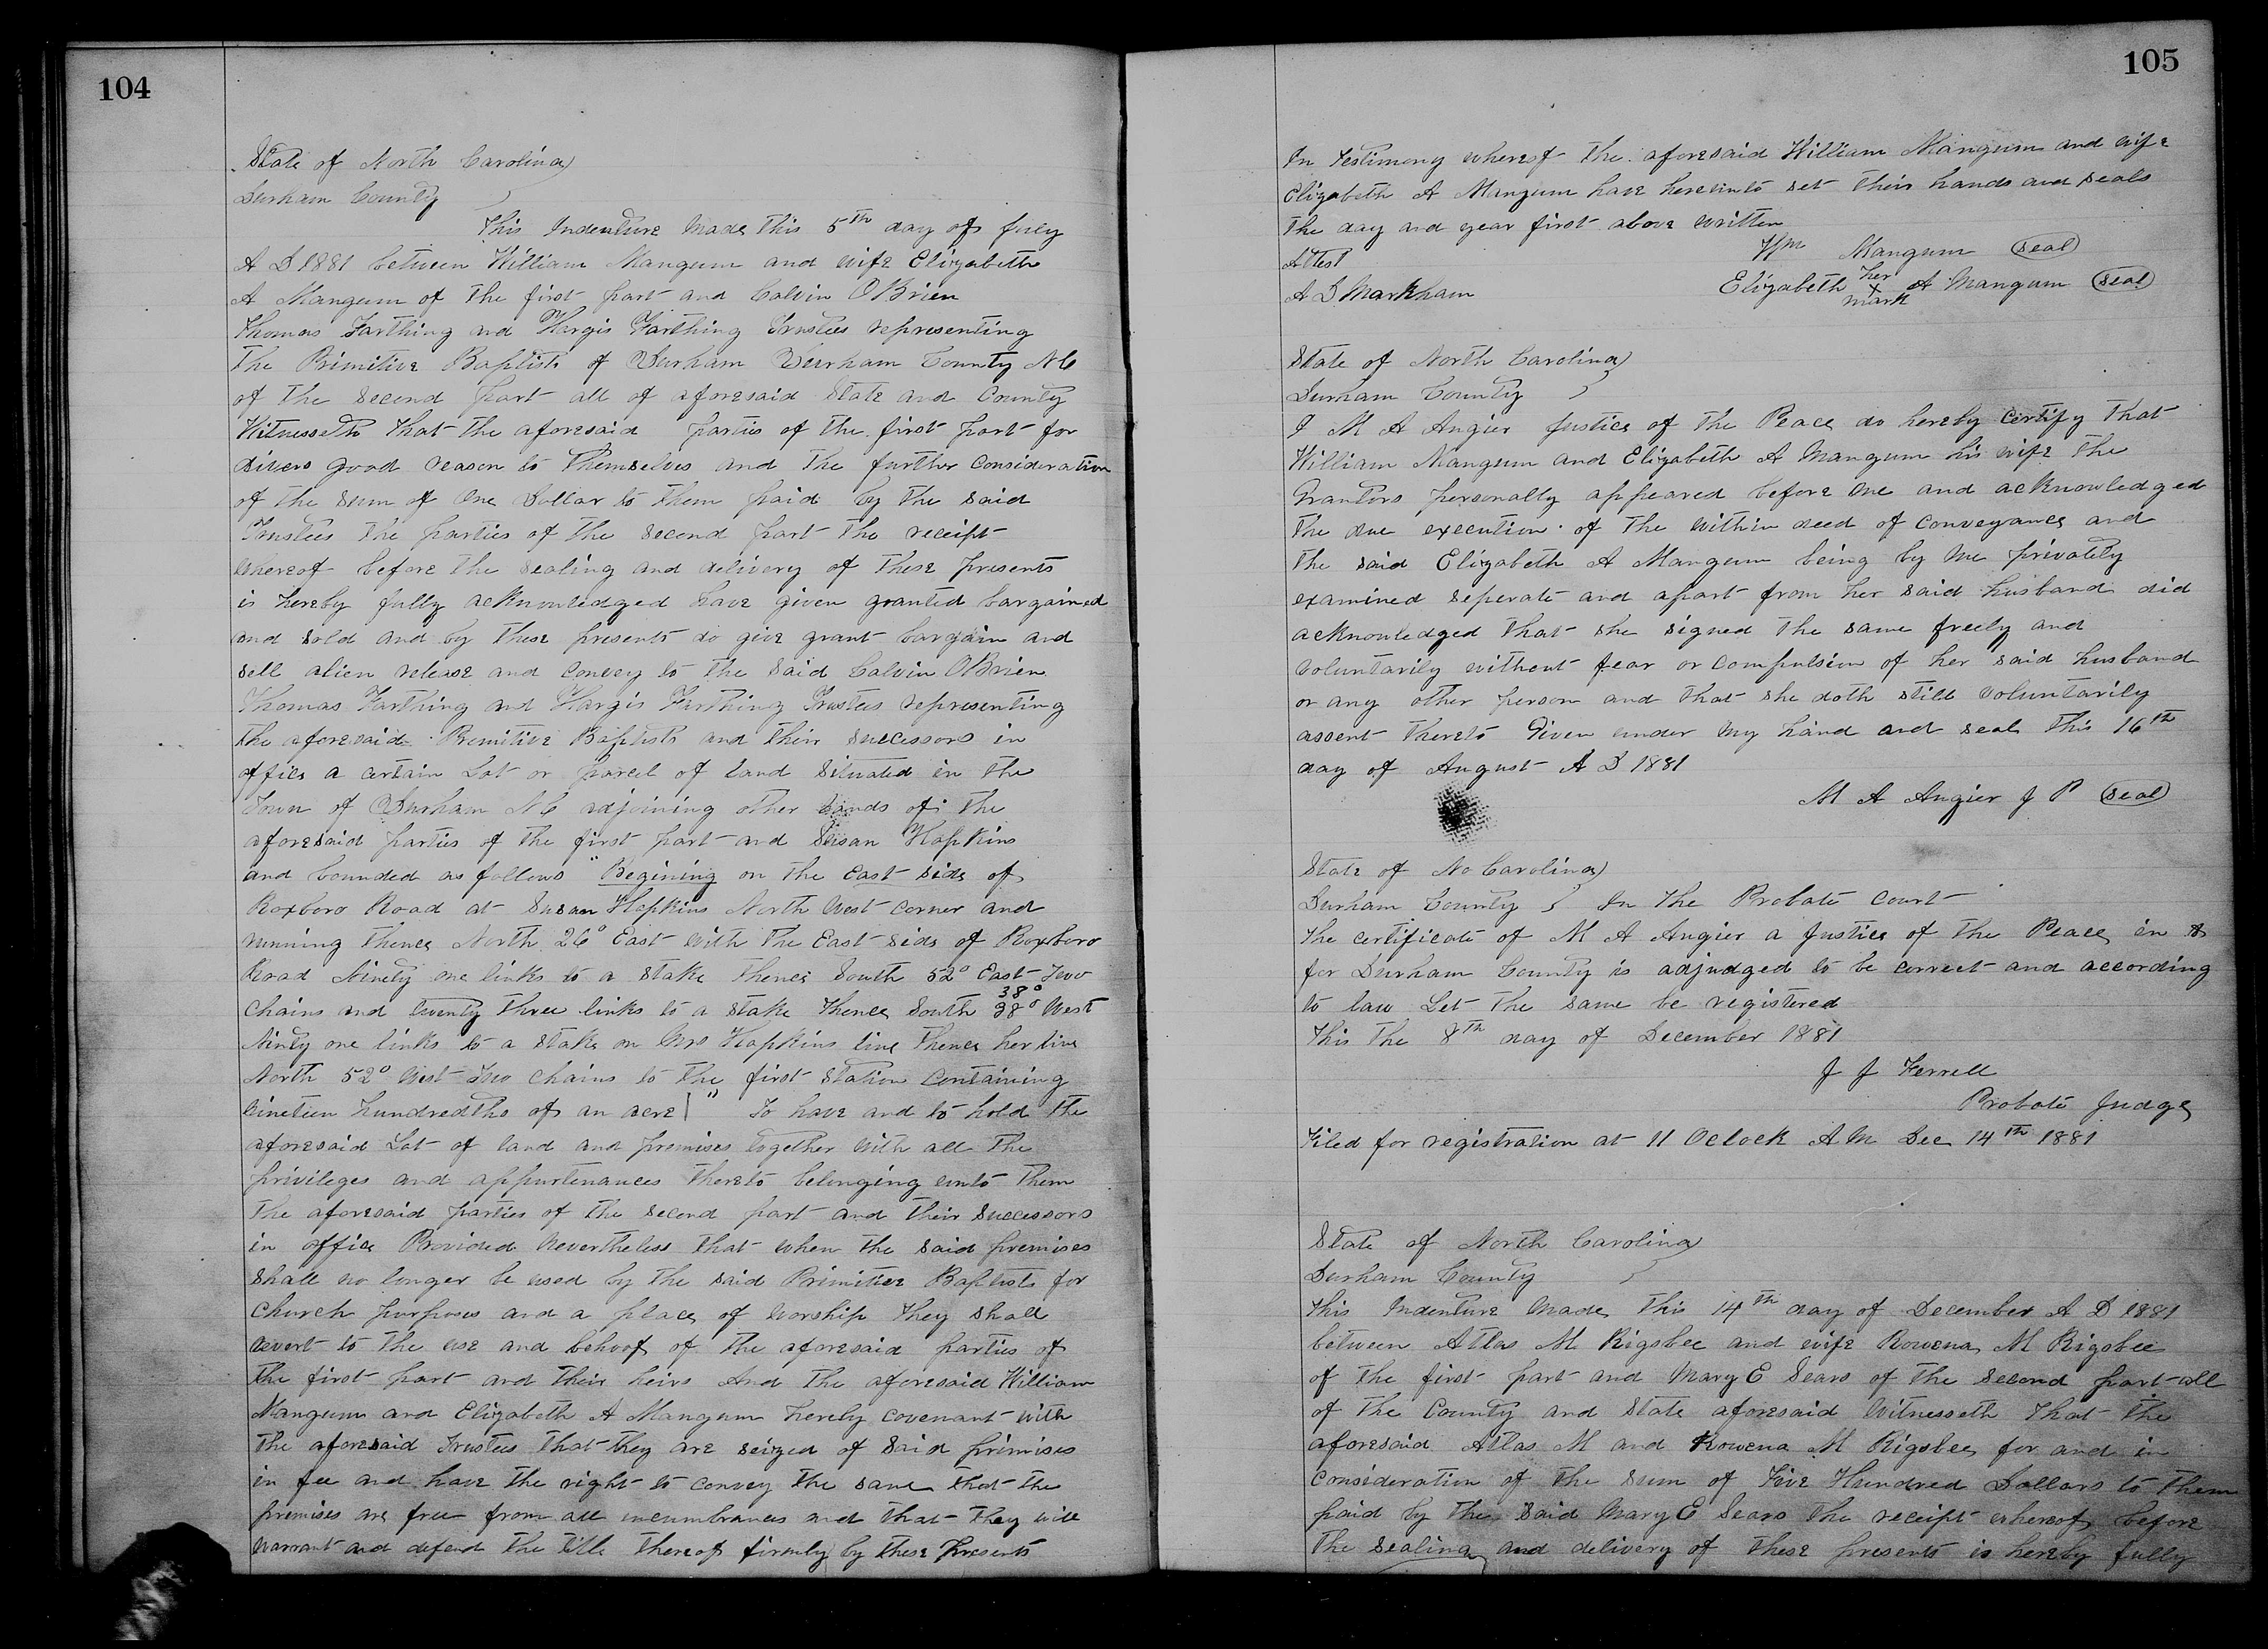 104
State of North Carolina)
Durham County )
This Indenture Made This 5th day of July
A D 1881 between William Mangum and wife Elizabeth
A Mangum of the first part and Calvin OBrien
Thomas Farthing and Hargis Farthing Trustees representing
the Primitive Baptists of Durham Durham County N C
of the second part all of aforesaid State and County
Witnesseth that the aforesaid parties of the first part for
divers good reason to themselves and the further consideration
of the sum of One Dollar to them paid by the said
Trustees the parties of the second part the receipt
whereof before the sealing and delivery of these presents
is hereby fully acknowledged have given granted bargained
and sold and by these presents do give grant bargain and
sell alien release and convey to the said Calvin OBrien
Thomas Farthing and Hargis Farthing Trustees representing
the aforesaid Primitive Baptists and their successors in
office a certain Lot or parcel of land situated in the
Town of Durham N C adjoining other lands of the
aforesaid parties of the first part and Susan Hopkins
and bounded as follows "Begining on the East side of
Roxboro Road at Susan Hopkins North West corner and
running thence North 26° East with the East side of Roxboro
Road Ninety one links to a stake thence South 52° East Two
chains and twenty three links to a stake thence South 38° 38° West
Ninty one links to a stake on Mrs Hopkins line thence her line
North 52° West Two chains to the first station containing
Nineteen hundredths of an acre" To have and to hold the
aforesaid Lot of land and premises together with all the
privileges and appurtenances thereto belonging unto them
the aforesaid parties of the second part and their successors
in office Provided Nevertheless that when the said premises
shall no longer be used by the said Primitive Baptists for
church purposes and a place of worship they shall
revert to the use and behoof of the aforesaid parties of
the first part and their heirs And the aforesaid William
Mangum and Elizabeth A Mangum hereby covenant with
the aforesaid Trustees that they are seized of said primises
in fee and have the right to convey the same that the
premises are free from all incumbrances and that they will
warrant and defend the title thereof firmly by these presents
105
In Testimony whereof the aforesaid William Mangum and wife
Elizabeth A Mangum have hereunto set their hands and seals
the day and year first above written
Attest
Wm Mangum (seal)
A D Markham
Elizabeth her x mark A Mangum (seal)
State of North Carolina)
Durham County )
I M A Angier Justice of the Peace do hereby certify that
William Mangum and Elizabeth A Mangum his wife the
Grantors personally appeared before me and acknowledged
the due execution of the within deed of conveyance and
the said Elizabeth A Mangum being by me privately
examined seperate and apart from her said husband did
acknowledged that she signed the same freely and
voluntarily without fear or compulsion of her said husband
or any other person and that she doth still voluntarily
assent thereto Given under my hand and seal this 16th
day of August A D 1881
M A Angier J P (seal)
State of No Carolina)
Durham County ) In the Probate Court
The certificate of M A Angier a Justice of the Peace in &
for Durham County is adjudged to be correct and according
to law Let the same be registered
This the 8th day of December 1881
J J Ferrell
Probate Judge
Filed for registration at 11 Oclock A M Dec 14th 1881
State of North Carolina)
Durham County )
This Indenture Made this 14th day of December A D 1881
between Atlas M Rigsbee and wife Rowena M Rigsbee
of the first part and Mary E Sears of the second part all
of the County and State aforesaid Witnesseth that the
aforesaid Atlas M and Rowena M Rigsbee for and in
consideration of the sum of Five Hundred Dollars to them
paid by the said Mary E Sears the receipt whereof before
the sealing and delivery of these presents is hereby fully